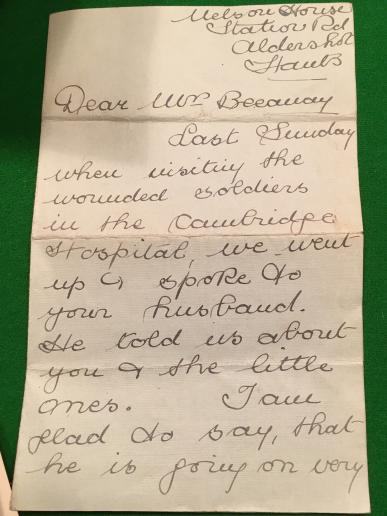 Nelson House
Station Rd
Aldershot
Hants
Dear Mrs Beeaway
Last Sunday
when visiting the
wounded soldiers
in the Cambridge
Hospital, we went
up & spoke to
your husband.
He told us about
you & the little
ones. I am
glad to say, that
he is going on very